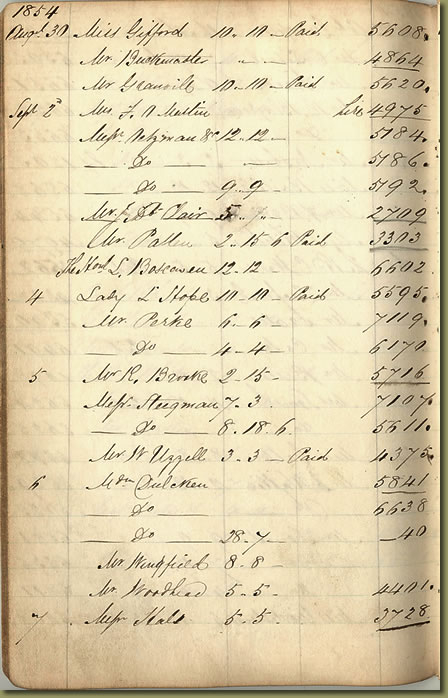 1854
Augt 30 Miss Gifford 10 - 10 - Paid 5608.
Mr Buckmaster - - 4864
Mr Granvill 10 - 10 - Paid 5620.
Sept 2d Mrs F. A Martin Hire 4975
Messrs Wetzman &c 12 - 12 - 5184.
— Do — — 5186.
— Do — 9 - 9 - 5192.
Mr St Clair 5 - 7 - 2709
Mr. Patten 2 - 15 6 Paid 3303
The Honl L, Boscawen 12 - 12 6602.
4 Lady L Hope 10 - 10 - Paid 5595.
Mr. Perke 6 - 6 - 7119.
— Do — 4 - 4 - 6170
5 Mr R. Brooke 2 - 15 - 5716
Messr Steegman 7 - 3 7107
— Do — 8 . 18 6. 5611.
Mr W Uzzell 3 - 3 - Paid 4375.
6 Mdm Dulcken 5841
— Do — 6638
— Do — 28 - 7 - —40
Mr Wingfield 8 - 8 -
Mr Woodhead 5 - 5 - 4401.
7 Messr Hale 5 - 5 3728